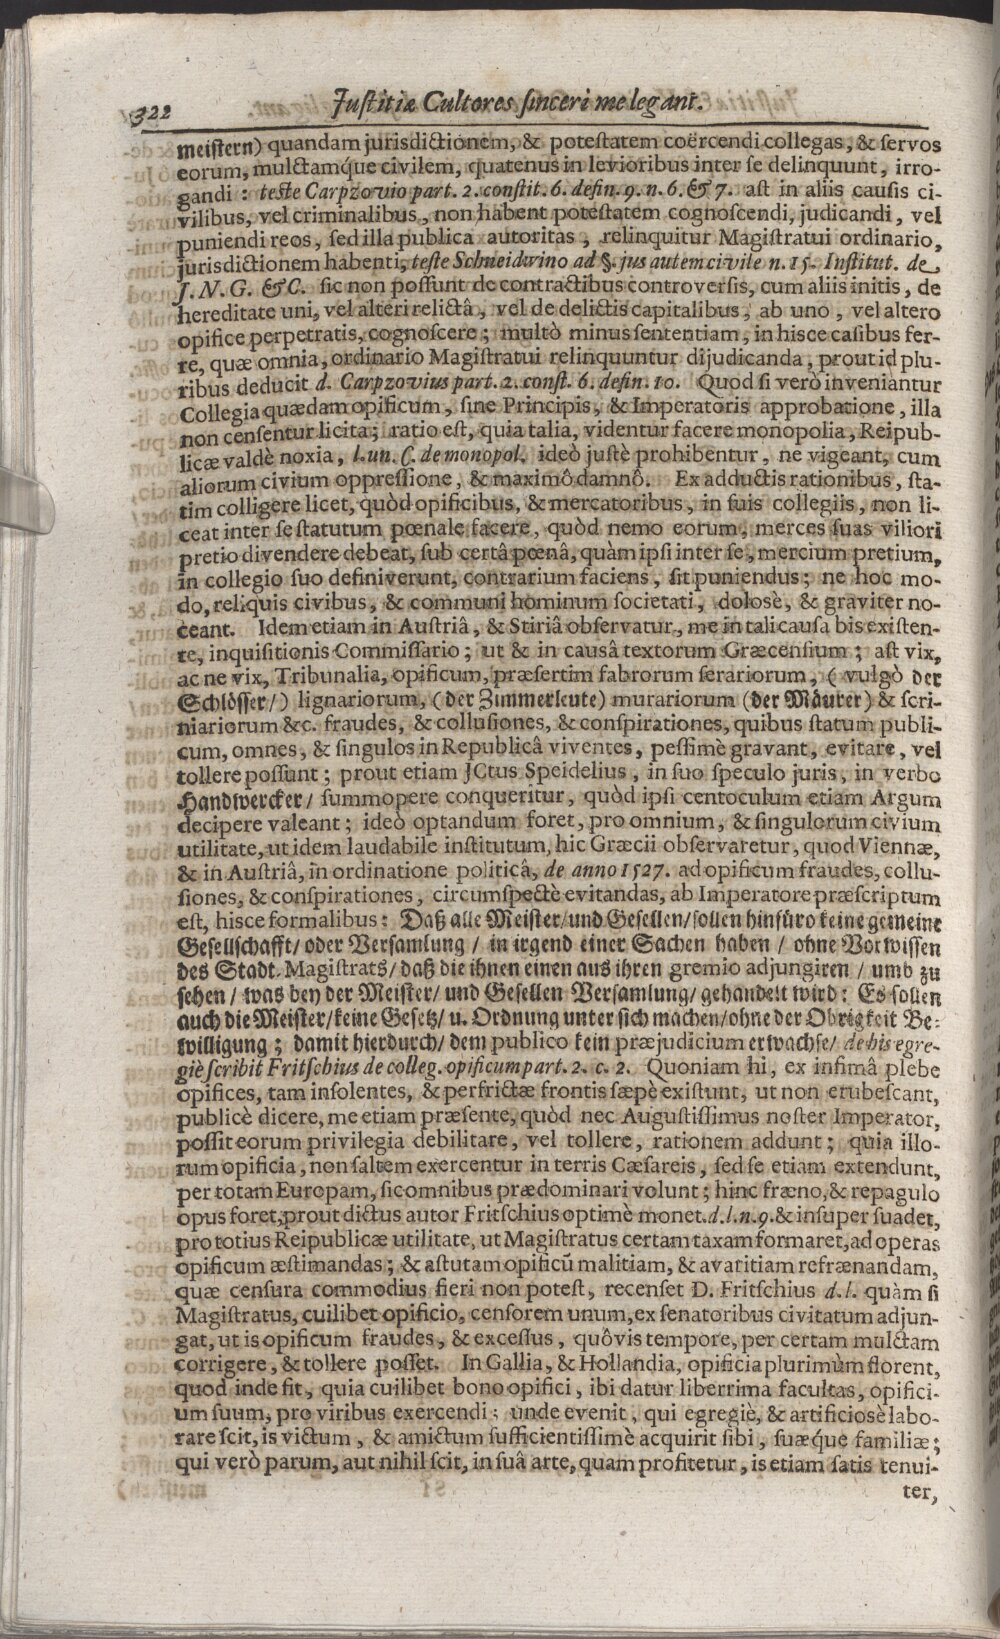 322 Justitiæ Cultores sinceri me legant.
meistern) quandam jurisdictionem, & potestatem coërcendi collegas, & servos
eorum, mulctamq́ue civilem, quatenus in levioribus inter se delinquunt, irro-
gandi : teste Carpzovio part. 2. constit. 6. defin. 9. n. 6. & 7. ast in aliis causis ci-
vilibus, vel criminalibus, non habent potestatem cognoscendi, judicandi, vel
puniendi reos, sed illa publica autoritas, relinquitur Magistratui ordinario,
jurisdictionem habenti, teste Schneidwino ad §. jus autem civile n. 15. Institut. de
J. N. G. & C. sic non possunt de contractibus controversis, cum aliis initis, de
hereditate uni, vel alteri relictâ, vel de delictis capitalibus, ab uno, vel altero
opifice perpetratis, cognoscere ; multò minus sententiam, in hisce casibus fer-
re, quæ omnia, ordinario Magistratui relinquuntur dijudicanda, prout id plu-
ribus deducit d. Carpzovius part. 2. const. 6. defin. 10. Quod si verò inveniantur
Collegia quædam opificum, sine Principis, & Imperatoris approbatione, illa
non censentur licita; ratio est, quia talia, videntur facere monopolia, Reipub-
licæ valdè noxia, l. un. C. de monopol. ideò justè prohibentur, ne vigeant, cum
aliorum civium oppressione, & maximô damnô. Ex adductis rationibus, sta-
tim colligere licet, quòd opificibus, & mercatoribus, in suis collegiis, non li-
ceat inter se statutum pœnale facere, quòd nemo eorum, merces suas viliori
pretio divendere debeat, sub certâ pœnâ, quàm ipsi inter se, mercium pretium,
in collegio suo definiverunt, contrarium faciens, sit puniendus; ne hoc mo-
do, reliquis civibus, & communi hominum societati, dolosè, & graviter no-
ceant. Idem etiam in Austriâ, & Stiriâ observatur, me in tali causa bis existen-
te, inquisitionis Commissario ; ut & in causâ textorum Græcensium ; ast vix,
ac ne vix, Tribunalia, opificum, præsertim fabrorum serariorum, (vulgò der
Schlösser/) lignariorum, (der Zimmerleute) murariorum (der Mäurer) & scri-
niariorum &c. fraudes, & collusiones, & conspirationes, quibus statum publi-
cum, omnes, & singulos in Republicâ viventes, pessimè gravant, evitare, vel
tollere possunt ; prout etiam JCtus Speidelius, in suo speculo juris, in verbo
Handwercker/ summopere conqueritur, quòd ipsi centoculum etiam Argum
decipere valeant ; ideò optandum foret, pro omnium, & singulorum civium
utilitate, ut idem laudabile institutum, hic Græcii observaretur, quod Viennæ,
& in Austriâ, in ordinatione politicâ, de anno 1527. ad opificum fraudes, collu-
siones, & conspirationes, circumspectè evitandas, ab Imperatore præscriptum
est, hisce formalibus : Daß alle Meister/ und Gesellen/ sollen hinfüro keine gemeine
Gesellschafft/ oder Versamlung / in irgend einer Sachen haben / ohne Vorwissen
des Stadt Magistrats/ daß die ihnen einen aus ihren gremio adjungiren / umb zu
sehen / was bey der Meister/ und Gesellen Versamlung/ gehandelt wird : Es sollen
auch die Meister/ keine Gesetz/ u. Ordnung unter sich machen/ ohne der Obrigkeit Be-
willigung ; damit hierdurch/ dem publico kein præjudicium erwachse/ de his egre-
giè scribit Fritschius de colleg. opificum part. 2. c. 2. Quoniam hi, ex infimâ plebe
opifices, tam insolentes, & perfrictæ frontis sæpè existunt, ut non erubescant,
publicè dicere, me etiam præsente, quòd nec Augustissimus noster Imperator,
possit eorum privilegia debilitare, vel tollere, rationem addunt ; quia illo-
rum opificia, non saltem exercentur in terris Cæsareis, sed se etiam extendunt,
per totam Europam, sic omnibus prædominari volunt ; hinc fræno, & repagulo
opus foret, prout dictus autor Fritschius optimè monet. d. l. n. 9. & insuper suadet,
pro totius Reipublicæ utilitate, ut Magistratus certam taxam formaret, ad operas
opificum æstimandas ; & astutam opificũ malitiam, & avaritiam refrænandam,
quæ censura commodius fieri non potest, recenset D. Fritschius d. l. quàm si
Magistratus, cuilibet opificio, censorem unum, ex senatoribus civitatum adjun-
gat, ut is opificum fraudes, & excessus, quôvis tempore, per certam mulctam
corrigere, & tollere posset. In Gallia, & Hollandia, opificia plurimùm florent,
quod inde fit, quia cuilibet bono opifici, ibi datur liberrima facultas, opifici-
um suum, pro viribus exercendi ; unde evenit, qui egregiè, & artificiosè labo-
rare scit, is victum, & amictum sufficientissimè acquirit sibi, suæq́ue familiæ ;
qui verò parum, aut nihil scit, in suâ arte, quam profitetur, is etiam satis tenui-
ter,